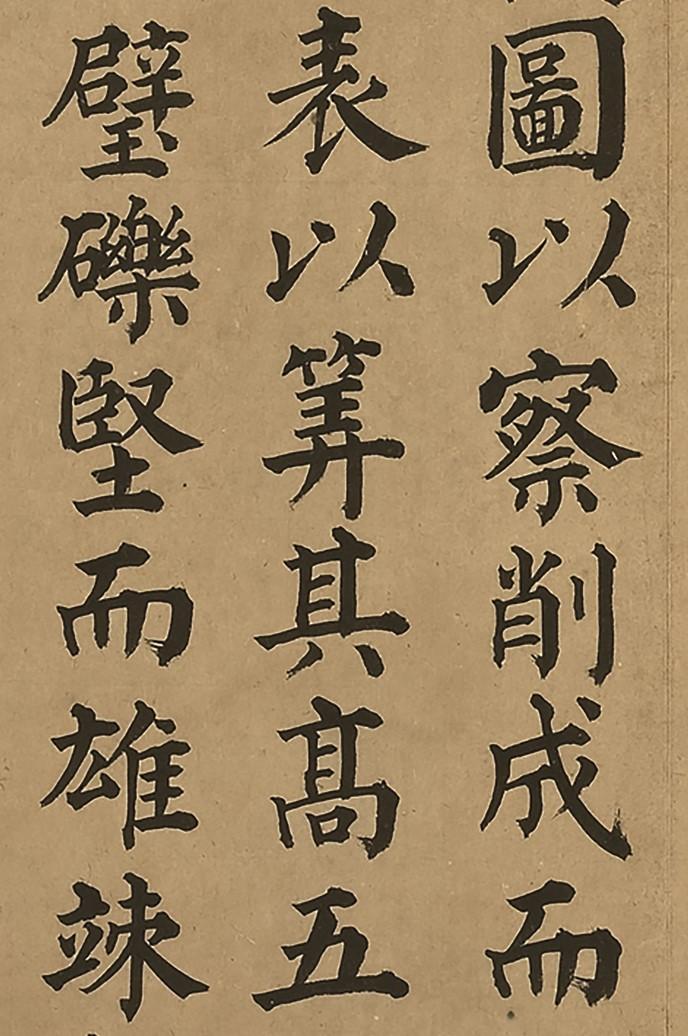 圖以察削成而
表以筭其髙五
璧礫堅而雄竦